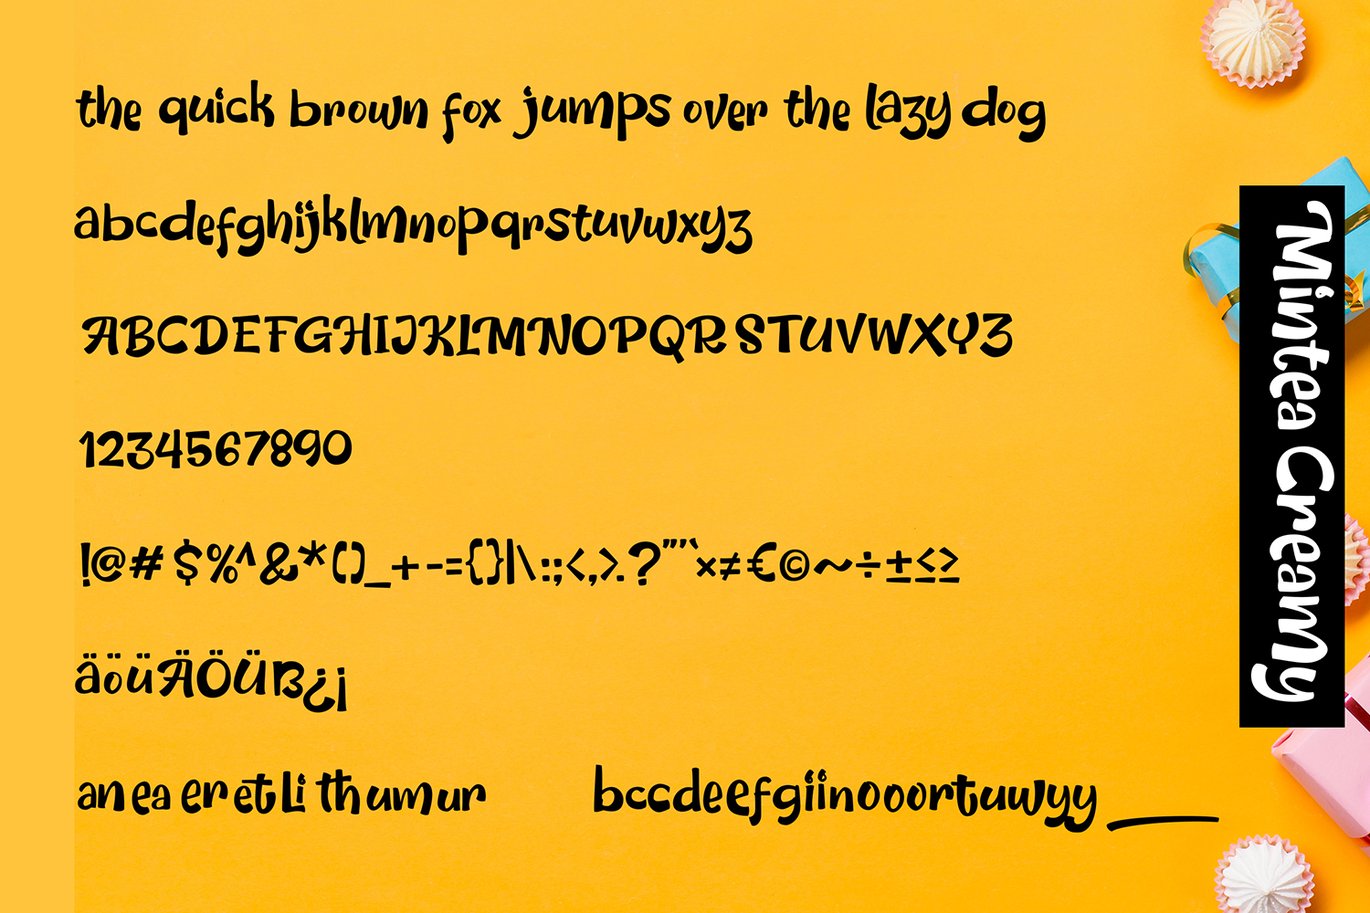 the quick brown fox jumps over the lazy dog
abcdefghijklmnopqrstuvwxyz
ABCDEFGHIJKLMNOPQRSTUVWXYZ
1234567890
!@#$%^&*()_+-={}|\:;<,>.?"'`×≠€©~÷±≤≥
äöüÄÖÜß¿¡
an ea er et Li th um ur
bccdeefgiinooortuwyy
Mintea Creamy